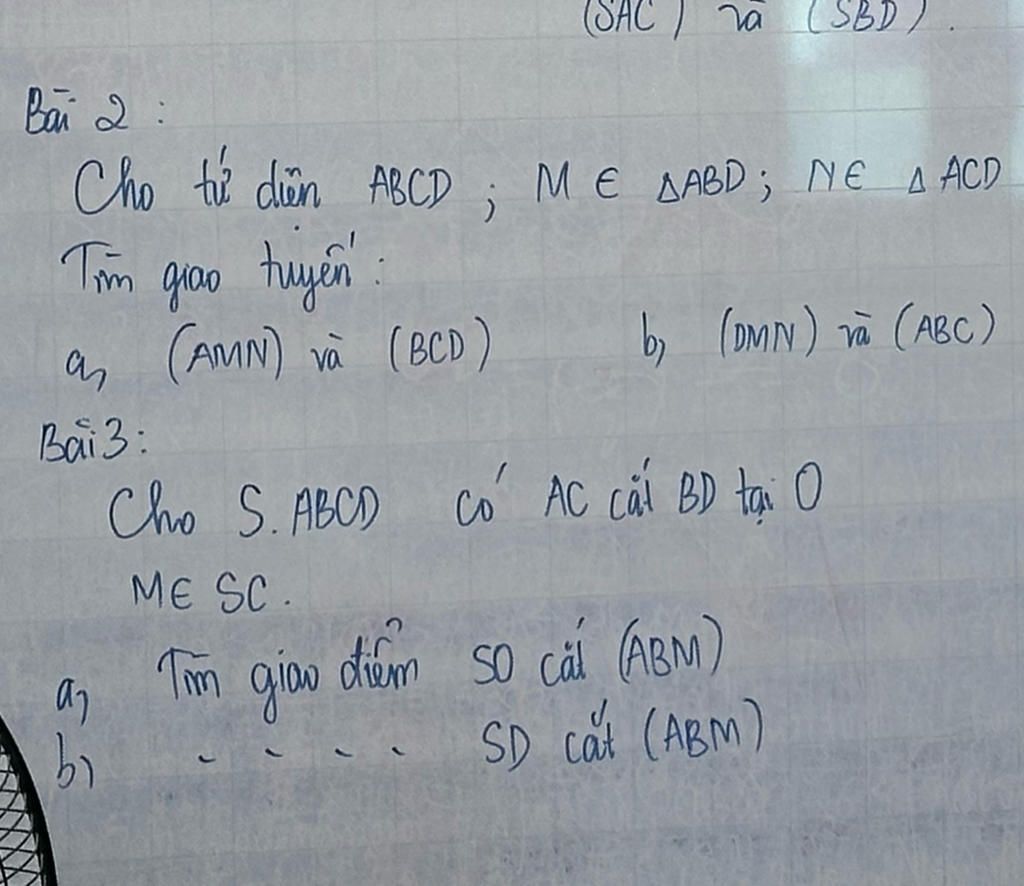 (SAC) và (SBD).
Bài 2:
Cho tứ diện ABCD; M ∈ △ABD; N ∈ △ ACD
Tìm giao tuyến:
a, (AMN) và (BCD) b, (DMN) và (ABC)
Bài 3:
Cho S.ABCD có AC cắt BD tại O
M ∈ SC.
a, Tìm giao điểm SO cắt (ABM)
b, - - - - SD cắt (ABM)